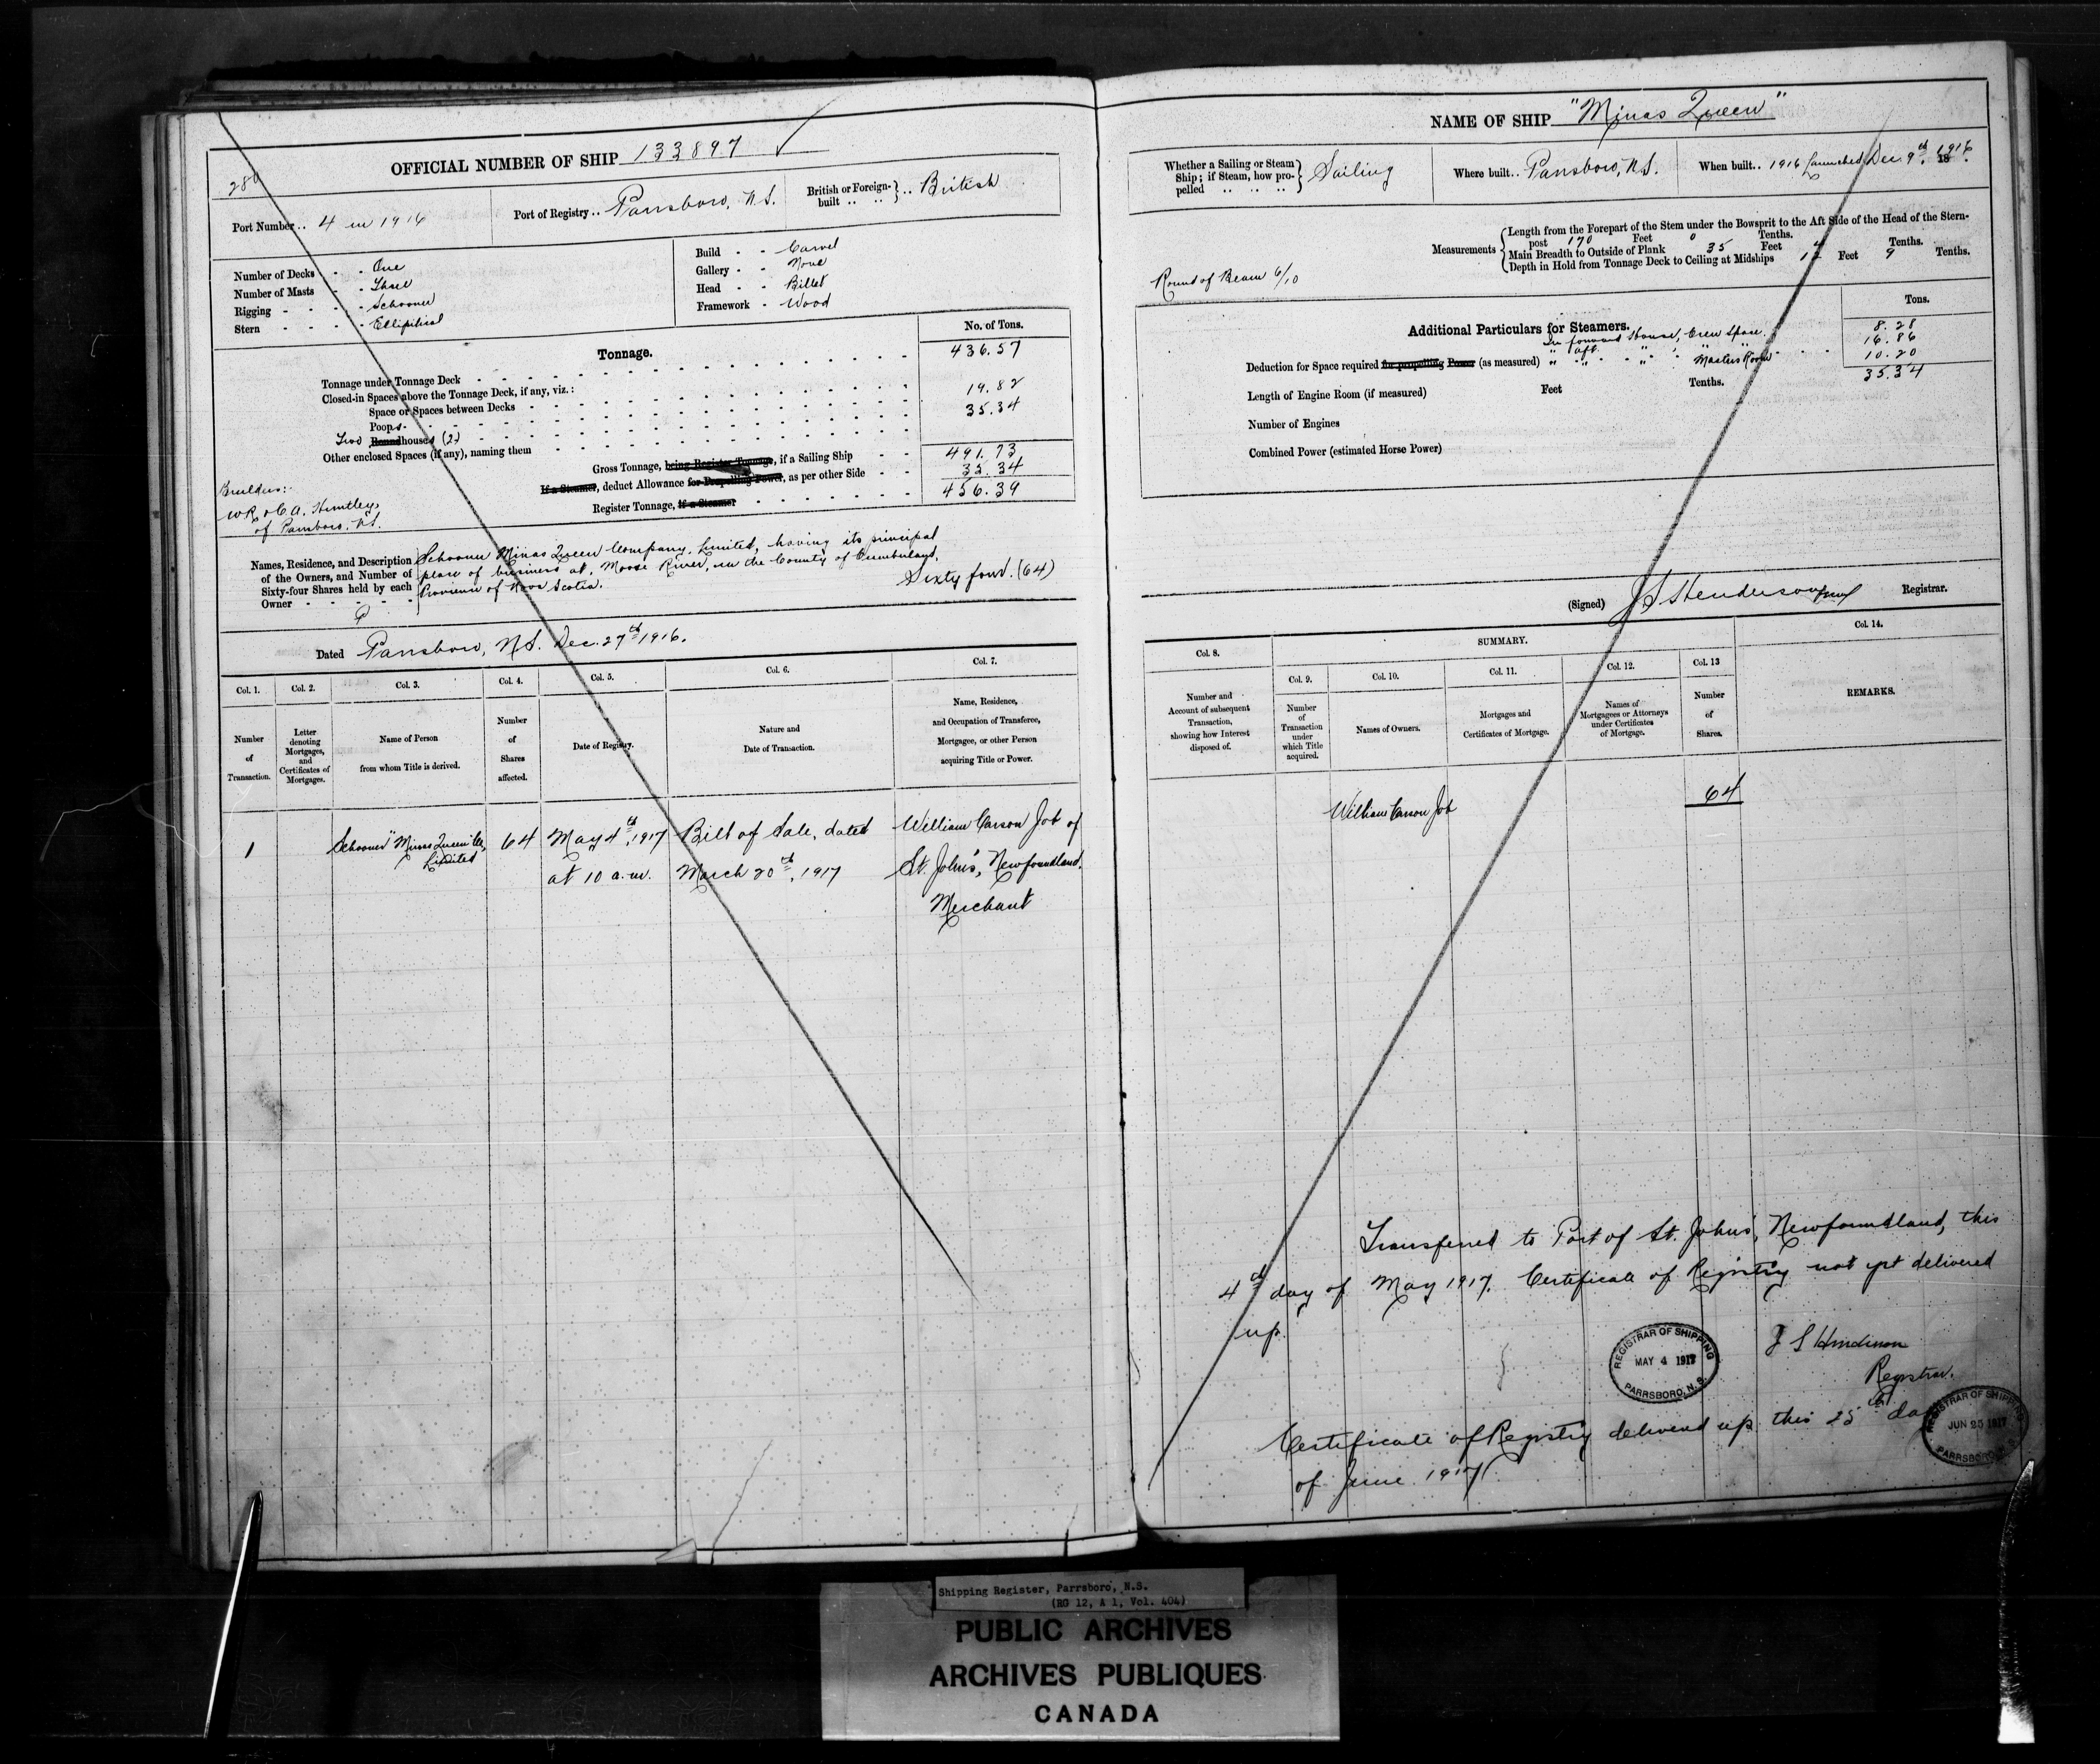 OFFICIAL NUMBER OF SHIP 133897
280
Port Number.. 4 in 1916
Port of Registry.. Parrsboro, N.S.
British or Foreign-built .. British
Number of Decks - - One
Number of Masts - - Three
Rigging - - - - Schooner
Stern - - - - Elliptical
Build - - Carvel
Gallery - - None
Head - - Billet
Framework - Wood
Tonnage.
No. of Tons.
Tonnage under Tonnage Deck 436.57
Closed-in Spaces above the Tonnage Deck, if any, viz.:
Space or Spaces between Decks
Poops 19.82
Two Roundhouses (2) 35.34
Other enclosed Spaces (if any), naming them
Gross Tonnage, being Register Tonnage, if a Sailing Ship 491.73
If a Steamer, deduct Allowance for Propelling Power, as per other Side 35.34
Register Tonnage, if a Steamer 456.39
Builders:-
W.R. & C.A. Huntley,
of Parrsboro, N.S.
Names, Residence, and Description of the Owners, and Number of Sixty-four Shares held by each Owner
Schooner Minas Queen Company, Limited, having its principal
place of business at Moose River, in the County of Cumberland,
Province of Nova Scotia.
Sixty four. (64)
Dated Parrsboro, N.S. Dec. 27th 1916.
Col. 1.
Col. 2.
Col. 3.
Col. 4.
Col. 5.
Col. 6.
Col. 7.
Number of Transaction.
Letter denoting Mortgages, and Certificates of Mortgages.
Name of Person from whom Title is derived.
Number of Shares affected.
Date of Registry.
Nature and Date of Transaction.
Name, Residence, and Occupation of Transferee, Mortgagee, or other Person acquiring Title or Power.
1
Schooner "Minas Queen Co,
Limited
64
May 4th, 1917
at 10 a.m.
Bill of Sale, dated
March 20th, 1917
William Carson Job of
St. John's, Newfoundland.
Merchant
NAME OF SHIP "Minas Queen"
Whether a Sailing or Steam Ship; if Steam, how propelled .. .. .. Sailing
Where built.. Parrsboro, N.S.
When built.. 1916 Launched Dec. 9th, 1916.
18
Measurements
Length from the Forepart of the Stem under the Bowsprit to the Aft Side of the Head of the Stern-
post 170 Feet 0 Tenths.
Main Breadth to Outside of Plank 35 Feet 4 Tenths.
Depth in Hold from Tonnage Deck to Ceiling at Midships 12 Feet 9 Tenths.
Round of Beam 6/10
Additional Particulars for Steamers.
Tons.
In forward House, Crew Space. 8.28
" aft " " " " 16.86
Deduction for Space required for propelling Power (as measured) " " " Masters Room 10.20
35.34
Length of Engine Room (if measured) Feet Tenths.
Number of Engines
Combined Power (estimated Horse Power)
(Signed) J S Henderson Registrar.
Col. 8.
SUMMARY.
Col. 14.
Col. 9.
Col. 10.
Col. 11.
Col. 12.
Col. 13
Number and Account of subsequent Transaction, showing how Interest disposed of.
Number of Transaction under which Title acquired.
Names of Owners.
Mortgages and Certificates of Mortgage.
Names of Mortgagees or Attorneys under Certificates of Mortgage.
Number of Shares.
REMARKS.
William Carson Job
64
Transferred to Port of St. John's, Newfoundland, this
4th day of May 1917. Certificate of Registry not yet delivered
up.
REGISTRAR OF SHIPPING
MAY 4 1917
PARRSBORO, N.S.
J S Henderson
Registrar.
Certificate of Registry delivered up this 25th day
of June 1917
REGISTRAR OF SHIPPING
JUN 25 1917
PARRSBORO, N.S.
Shipping Register, Parrsboro, N.S.
(RG 12, A 1, Vol. 404)
PUBLIC ARCHIVES
ARCHIVES PUBLIQUES
CANADA